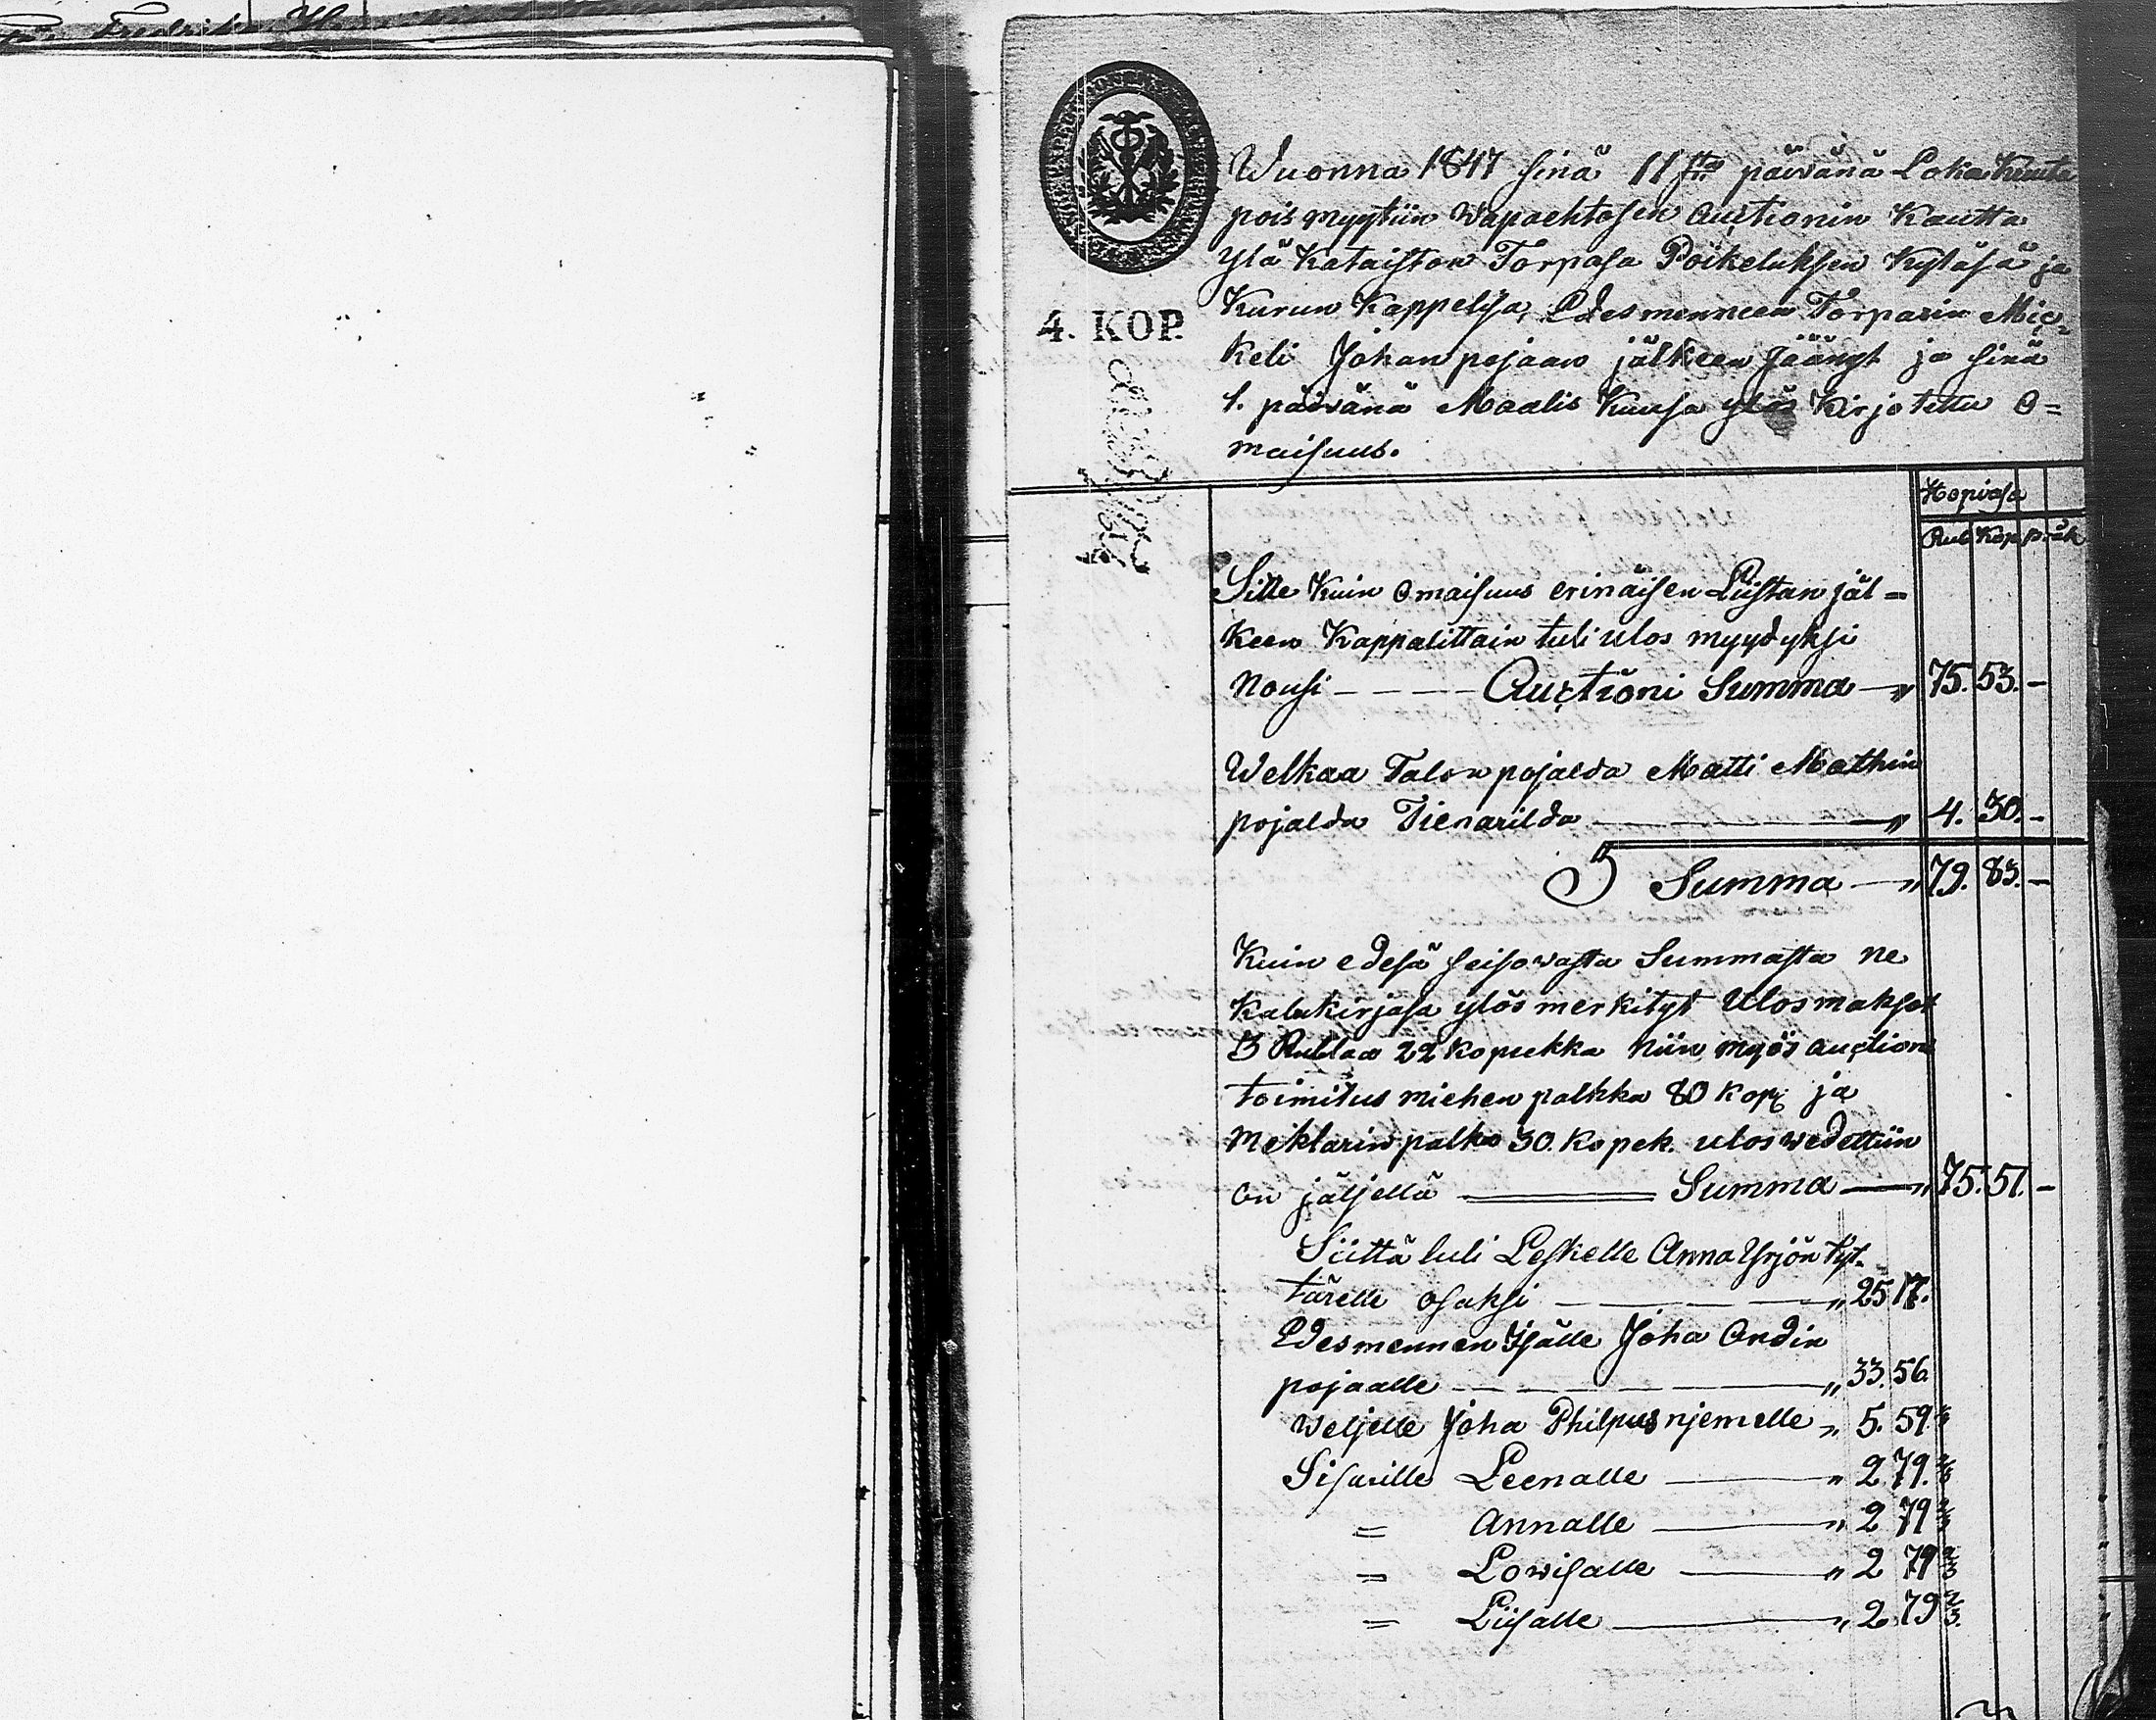 4. KOP.
Wuonna 1847 sinä 11sta päivänä Loka Kuuta
pois myytiin wapaehtosen auctionin Kautta
Ylä Kataiston Torpasa Poikeluksen Kyläsä ja
Kurun Kappelisa, Edesmenneen Torparin Mic=
keli Johan pojaan jälkeen jäängt ja sinä
1. päivänä Maalis Kuusa ylös Kirjotettu O=
maisuus.
Hopiasa
Rub Kop p:äk
Sitte Kuin omaisuus erinäisen Liistan jäl=
keen Kappalittain tuli ulos myydyksi
Nousi - - - - Auctioni Summa — " 75. 53. -
Welkaa Talon pojalda Matti Mathin
pojalda Tienarilda — " 4. 30. -
Summa — " 79. 83. -
Kuin edesä seisowasta Summasta ne
Kalukirjasa ylösmerkityt Ulosmaksot
3 Rublaa 22 kopiekka Niin myös auction
toimitus miehen palkka 80 kop: ja
Meklarin palka 30. kopek. ulos wedettiin
on jäljellä — Summa — " 75. 51. -
Siittä tuli Leskelle Anna Yrjön tyt-
tärelle osaksi — " 25 17.
Edesmennen Isälle Joha Andin
pojaalle — " 33. 56.
Weljelle Joha Philpus njemelle " 5. 59 1/3
Sisarille Leenalle — " 2 79. 2/3
= Annalle — " 2 79 2/3
= Lowisalle — " 2 79 2/3
= Liisalle — " 2 79 2/3.